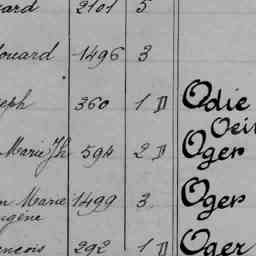 ard 2101 5
ouard 1496 3
eph 360 1 D Odie
Oei
Marie Jh 594 2 D Oger
n Marie 1499 3 Oger
ugène
ancois 292 1 D Oger